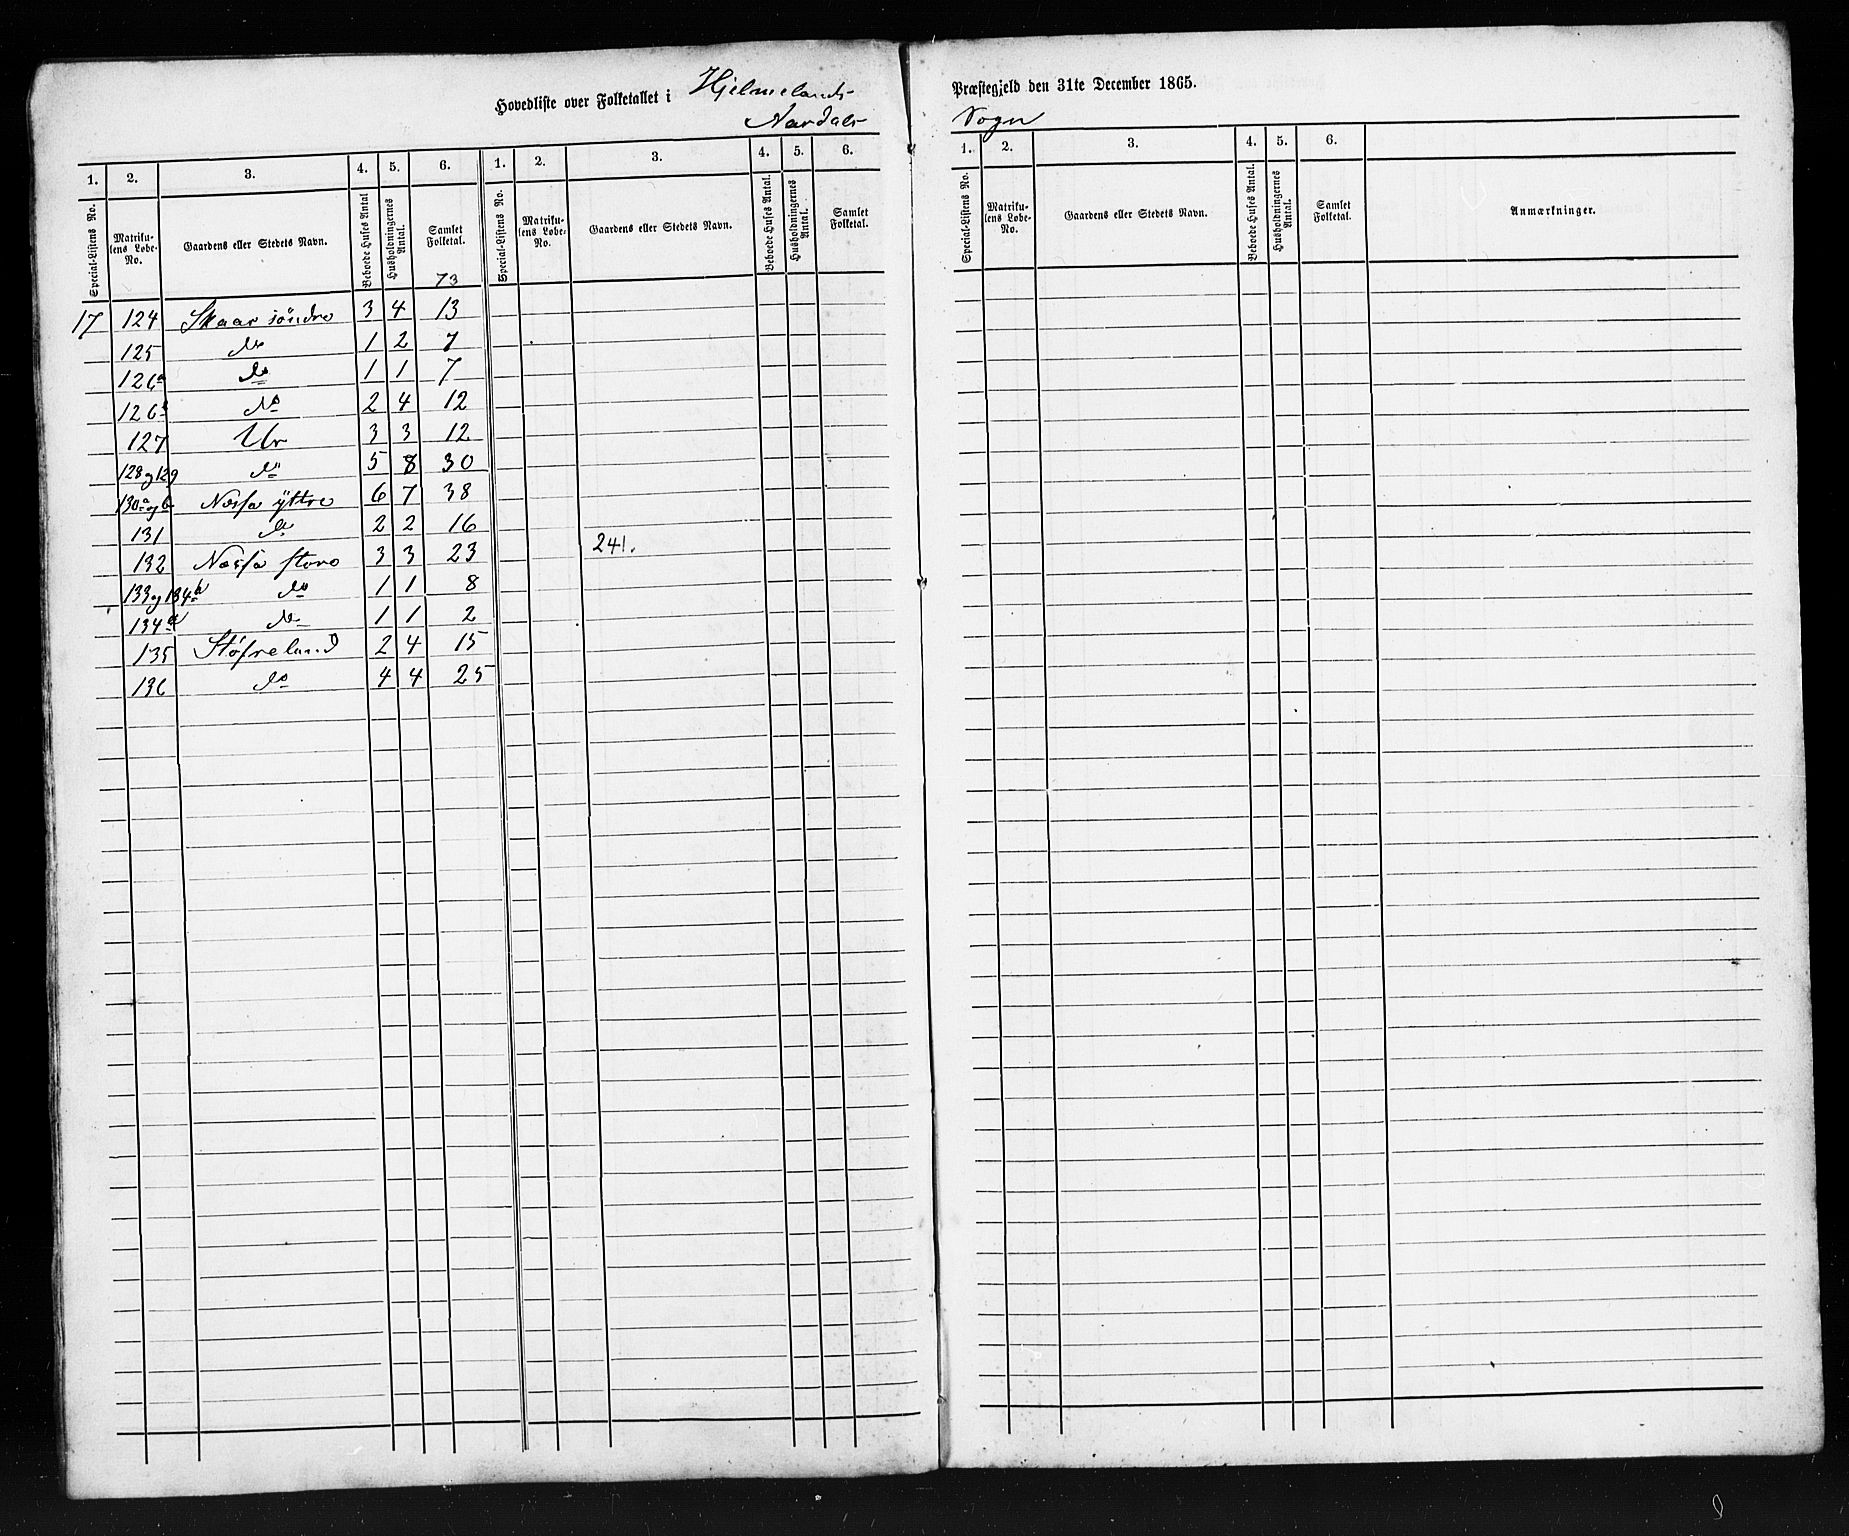 Hovedliste over Folketallet i Hjelmelands Præstegjeld den 31te December 1865.
Aardals Sogn
1. 2. 3. 4. 5. 6. 1. 2. 3. 4. 5. 6. 1. 2. 3. 4. 5. 6.
Special-Listens No. Matrikulens Løbe-No. Gaardens eller Stedets Navn. Beboede Huses Antal Husholdningernes Antal. Samlet Folketal. Special-Listens No. Matrikulens Løbe-No. Gaardens eller Stedets Navn. Beboede Huses Antal. Husholdningernes Antal. Samlet Folketal. Special-Listens No. Matrikulens Løbe-No. Gaardens eller Stedets Navn. Beboede Huses Antal. Husholdningernes Antal. Samlet Folketal. Anmærkninger.
73
17 124 Skaar söndre 3 4 13
125 do 1 2 7
126a do 1 1 7
126b do 2 4 12
127 Ur 3 3 12
128 og 129 do 5 8 30
130a og b Næssa ÿttre 6 7 38
131 do 2 2 16
132 Næssa store 3 3 23 241.
133 og 134b do 1 1 8
134a do 1 1 2
135 Stöfreland 2 4 15
136 do 4 4 25